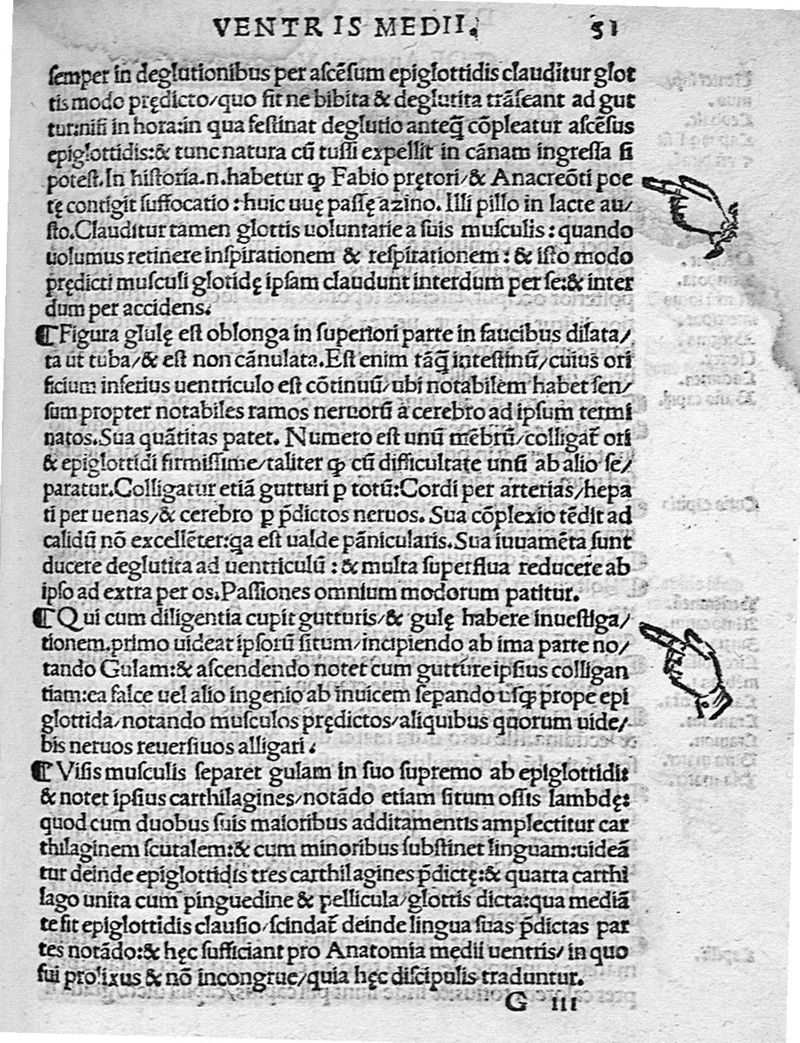 VENTRIS MEDII. 51
semper in deglutionibus per ascēsum epiglottidis clauditur glot
tis modo prędicto/quo fit ne bibita & deglutita trāseant ad gut
tur:nisi in hora:in qua festinat deglutio anteq̄ cōpleatur ascēsus
epiglottidis:& tunc natura cū tussi expellit in cānam ingressa si
potest.In historia.n.habetur ꝙ Fabio prętori/& Anacreōti poe
tę contigit suffocatio: huic uuę passę azino. Illi pillo in lacte au/
sto.Clauditur tamen glottis uoluntarie a suis musculis: quando
uolumus retinere inspirationem & respirationem: & isto modo
prędicti musculi glotidę ipsam claudunt interdum per se:& inter
dum per accidens.
¶Figura gulę est oblonga in superiori parte in faucibus dilata/
ta ut tuba/& est non cānulata.Est enim tāq̄ intestinū/cuius ori
ficium inferius uentriculo est cōtinuū/ubi notabilem habet sen/
sum propter notabiles ramos neruorū a cerebro ad ipsum termi
natos.Sua quātitas patet. Numero est unū mēbrū/colligat̄ ori
& epiglottidi firmissime/taliter ꝙ cū difficultate unū ab alio se/
paratur.Colligatur etiā gutturi p totū:Cordi per arterias/hepa
ti per uenas/& cerebro p p̄dictos neruos. Sua cōplexio tēdit ad
calidū nō excellēter:qa est ualde pānicularis.Sua iuuamēta sunt
ducere deglutita ad uentriculū: & multa superflua reducere ab
ipso ad extra per os.Passiones omnium modorum patitur.
¶Qui cum diligentia cupit gutturis/& gulę habere inuestiga/
tionem.primo uideat ipsorū situm/incipiendo ab ima parte no/
tando Gulam:& ascendendo notet cum gutture ipsius colligan
tiam:ea falce uel alio ingenio ab inuicem sepando usꝙ prope epi
glottida/notando musculos prędictos/aliquibus quorum uide/
bis neruos reuersiuos alligari.
¶Visis musculis separet gulam in suo supremo ab epiglottidi:
& notet ipsius carthilagines/notādo etiam situm ossis lambdę:
quod cum duobus suis maioribus additamentis amplectitur car
thilaginem scutalem:& cum minoribus substinet linguam:uideā
tur deinde epiglottidis tres carthilagines p̄dictę:& quarta carthi
lago unita cum pinguedine & pellicula/glottis dicta:qua mediā
te fit epiglottidis clausio/scindat̄ deinde lingua suas p̄dictas par
tes notādo:& hęc sufficiant pro Anatomia medii uentris/in quo
fui prolixus & nō incongrue/quia hęc discipulis traduntur.
G iii